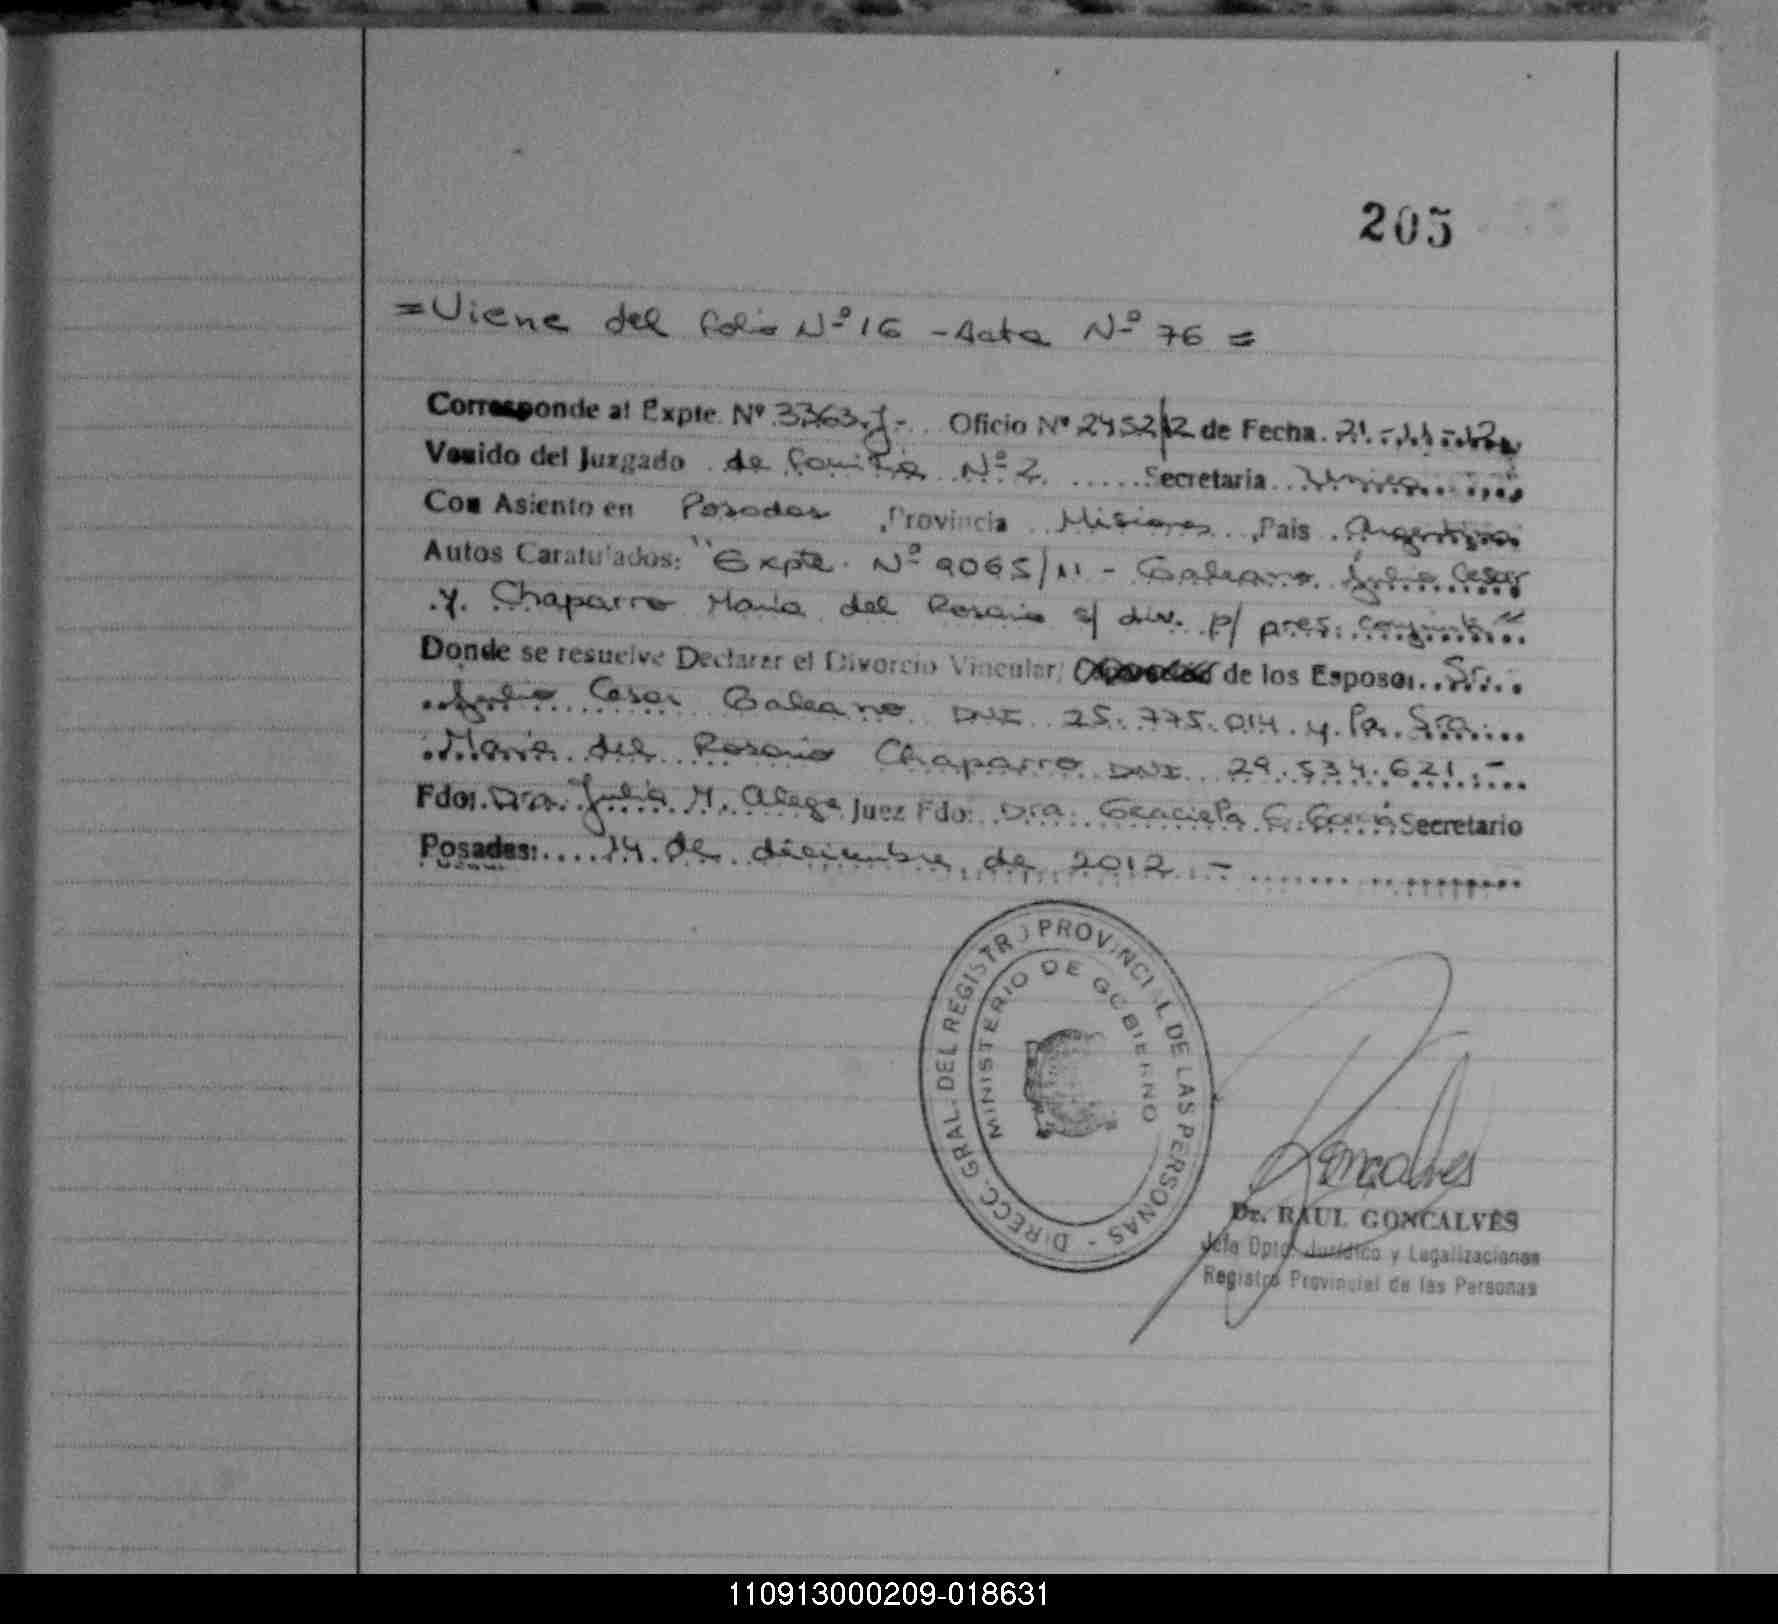 205
=Viene del folio Nº 16 - Acta Nº 76 =
Corresponde al Expte. Nº 3363.J.- Oficio Nº 2452/12 de Fecha. 21.-11-12
Venido del Juzgado de familia Nº 2 Secretaria Unica
Con Asiento en Posadas ,Provincia Misiones ,Pais Argentina
Autos Caratulados: "Expte. Nº 9065/11 - Galeano Julio Cesar
y. Chaparro Maria del Rosario s/ div. p/ pres. conjunta"
Donde se resuelve Declarar el Divorcio Vincular/ de los Esposos Sr.
Julio Cesar Galeano DNI 25.775.014 y la Sra.
Maria del Rosario Chaparro DNI 29.534.621.-
Fdo: Dra. Julia M. Alega Juez Fdo: Dra. Graciela C. Garcia Secretario
Posadas: 14 de diciembre de 2012 -
DIRECC. GRAL. DEL REGISTRO PROVINCIAL DE LAS PERSONAS -
MINISTERIO DE GOBIERNO
Goncalves
Dr. RAUL GONCALVES
Jefe Dpto. Jurídico y Legalizaciones
Registro Provincial de las Personas
110913000209-018631